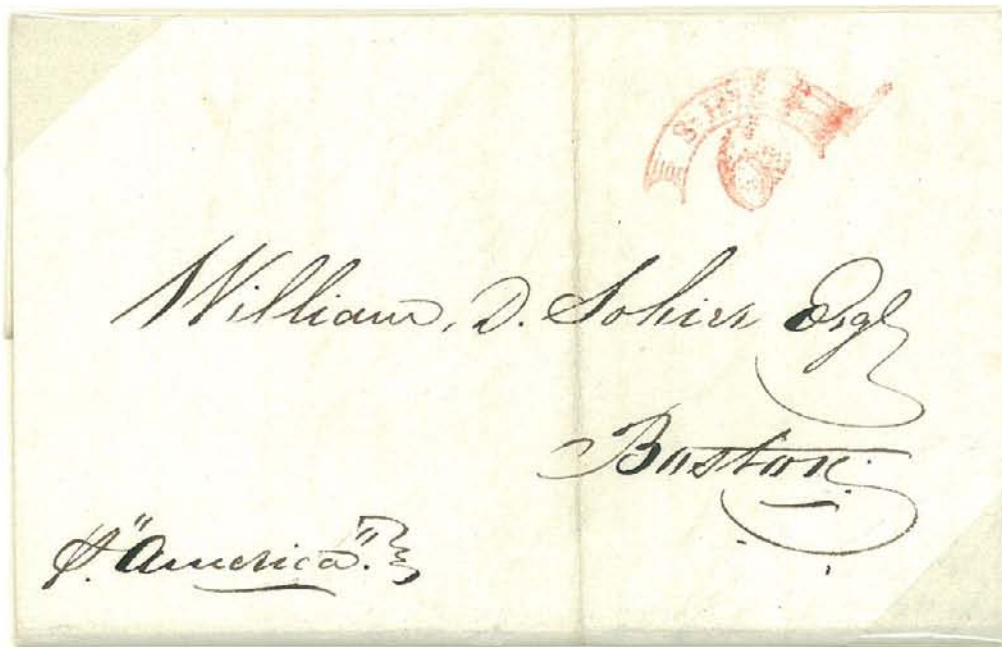 William. D. Sohier Esqr
Boston.
p. "America".